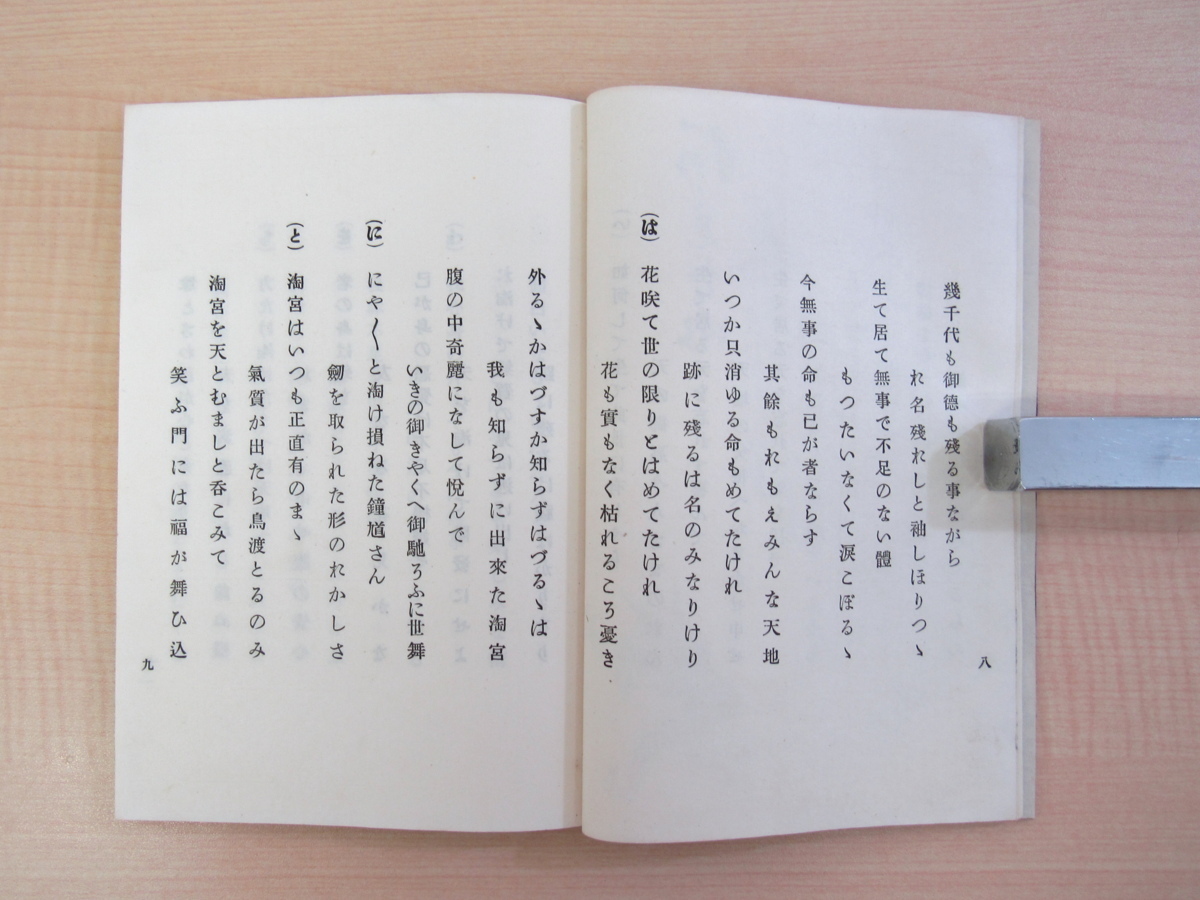 幾千代も御德も殘る事ながら
れ名殘れしと袖しほりつゝ
生て居て無事で不足のない體
もつたいなくて淚こぼるゝ
今無事の命も已が者ならす
其餘もれもえみんな天地
いつか只消ゆる命もめてたけれ
跡に殘るは名のみなりけり
(は) 花咲て世の限りとはめてたけれ
花も實もなく枯れるころ憂き
八
外るゝかはづすか知らずはづるゝは
我も知らずに出來た淘宮
腹の中奇麗になして悅んで
いきの御きやくへ御馳ろふに世舞
(に) にや〱と淘け損ねた鐘馗さん
劒を取られた形のれかしさ
(と) 淘宮はいつも正直有のまゝ
氣質が出たら鳥渡とるのみ
淘宮を天とむましと呑こみて
笑ふ門には福が舞ひ込
九